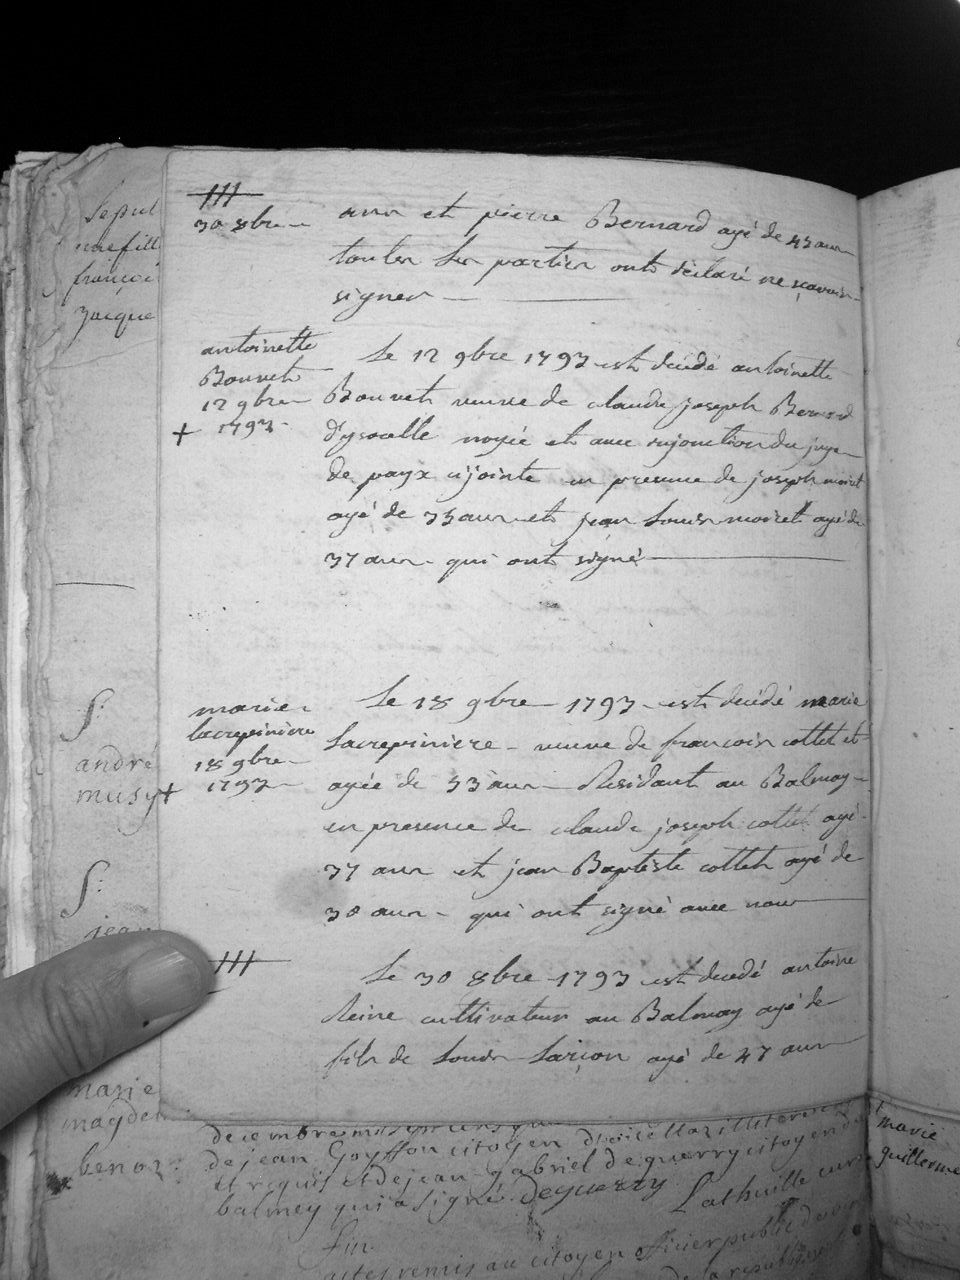 Sepul
une fill
françoi
Jacque
111
30 8bre
ans et pierre Bernard agé de 45 ans
toutes les parties ont déclaré ne sçavoir
signer
antoinette
Bonnet
12 9bre
+ 1793
Le 12 9bre 1793 est décédé antoinette
Bonnet veuve de claude joseph Bernard
d'ysoelle noyée et avec injonction du juge
de payx cijointe en presence de joseph moiret
agé de 35 ans et jean Louis moiret agé de
37 ans qui ont signé
marie
lacrepiniere
18 9bre
1793
Le 18 9bre 1793 est décédé marie
Lacrepiniere veuve de francois cottet et
agée de 53 ans Residant au Balmay
en presence de claude joseph cottet agé
37 ans et jean Baptiste cottet agé de
30 ans qui ont signé avec nous
S:
andré
musy +
S:
jean
111
Le 30 8bre 1793 est decedé antoine
Reine cultivateur au Balmay agé de
fils de Louis Larçon agé de 47 ans
marie
magdel
benoz
decembre
de jean Goyffon citoyen
et requis et de jean gabriel deguerry citoyen du
balmey qui a signé. Deguerry Lathuille curé
fin.
actes remis au citoyen officier public
de la républi
marie
guillerme